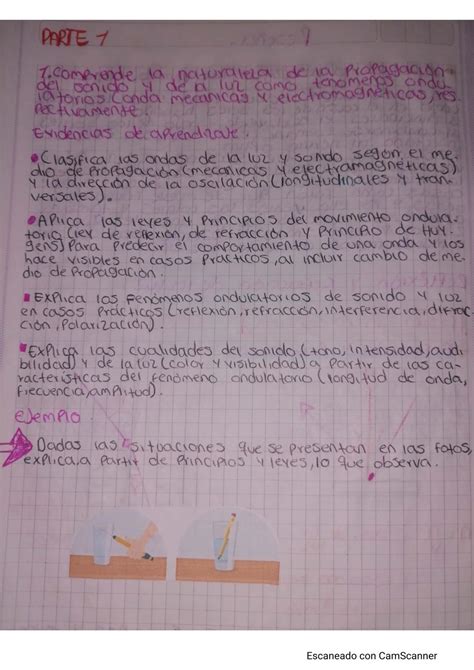 PARTE 1
1. Comprende la naturaleza de la Propagación
del sonido y de a luz como fenómenos ondu
latorios (onda mecánicas y electromagnéticas, res
pectivamente
Evidencias de aprendizaje.
Clasifica las ondas de la luz y sonido según el me
dio de Propagación (mecánicas y electromagnéticas)
y la dirección de la oscilación (longitudinales y tran
versales).
Aplica las leyes y Principios del movimiento ondula
torio (ley de reflexión, de refracción y Principio de Huy
gens) Para Predecir el comportamiento de una onda y los
hace visibles en casos Prácticos, al incluir cambio de me
dio de Propagación.
Explica los fenómenos ondulatorios de sonido y luz
en casos Prácticos (reflexión, refracción, interferencia, difrac
ción, Polarización).
Explica las cualidades del sonido (tono, intensidad, audi
bilidad) y de la luz (color y visibilidad) a Partir de las ca-
racterísticas del fenómeno ondulatorio (longitud de onda,
frecuencia, amplitud).
ejemplo
Dadas las situaciones que se presentan en las fotos,
explica, a Partir de Principios y leyes, lo que observa.
Escaneado con CamScanner